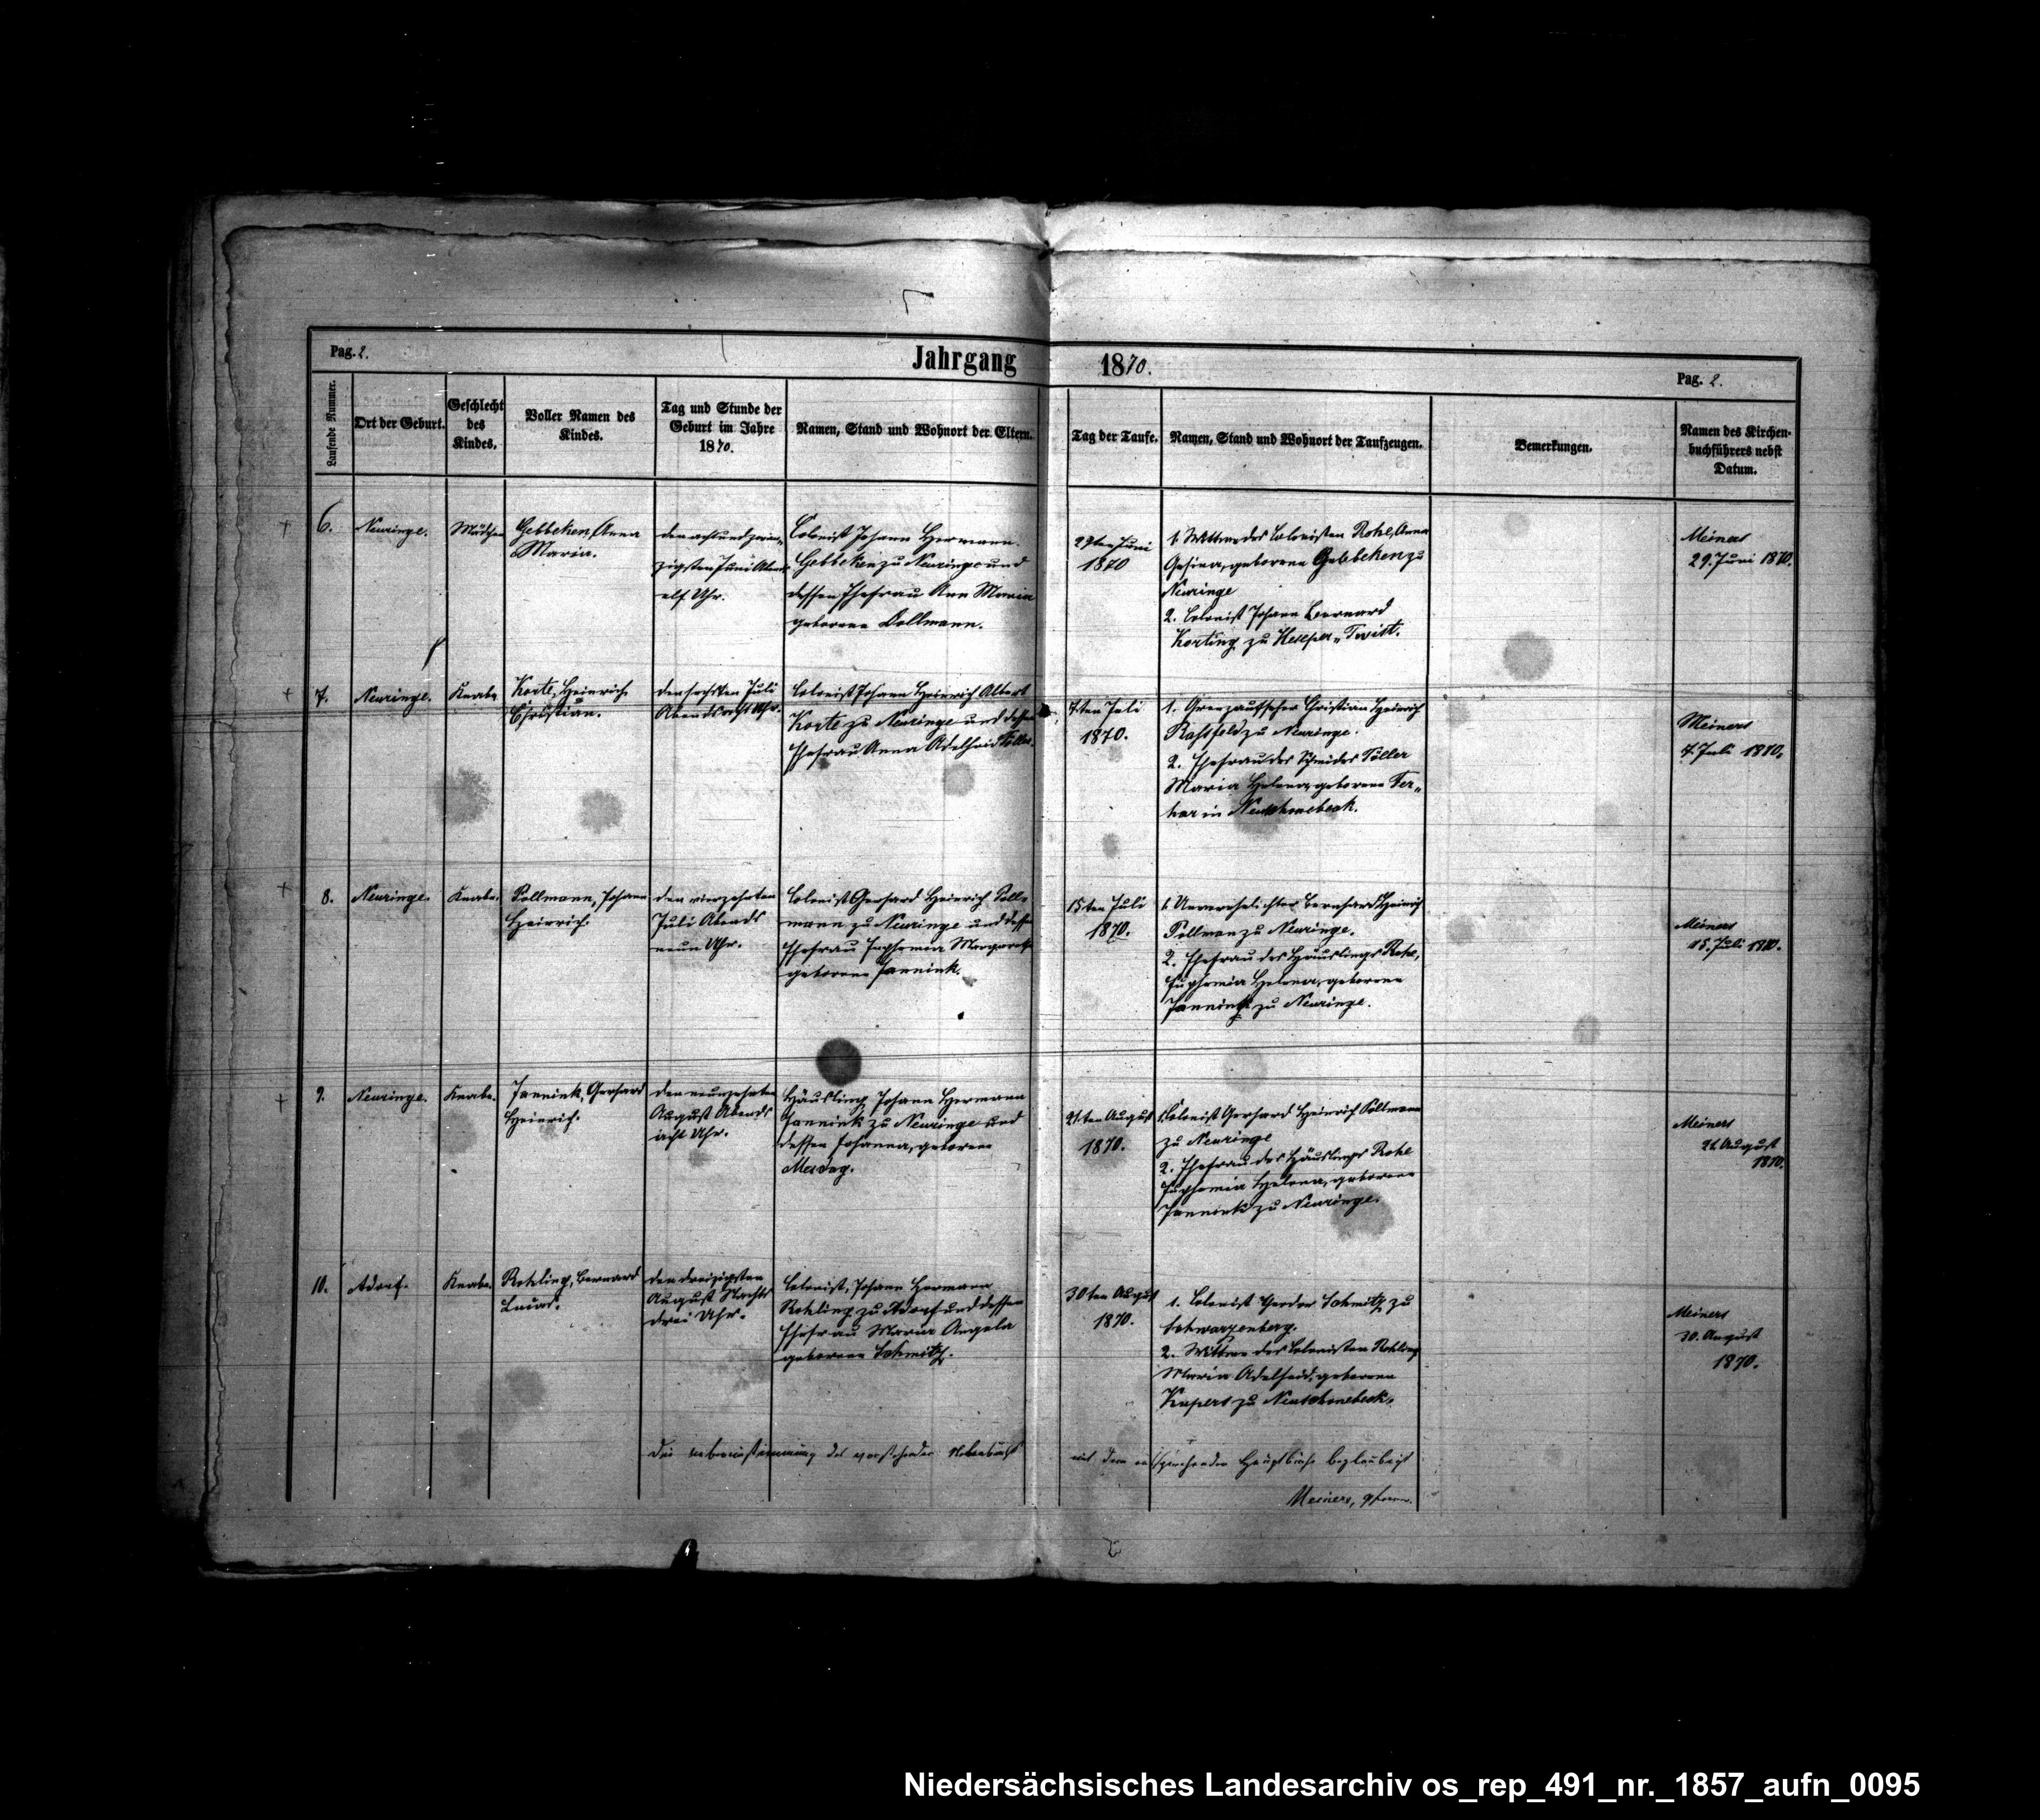 Pag. 2.
Jahrgang 1870.
Pag. 2.
Laufende Nummer.
Ort der Geburt.
Geschlecht
des
Kindes.
Voller Namen des
Kindes.
Tag und Stunde der
Geburt im Jahre
1870.
Namen, Stand und Wohnort der Eltern.
Tag der Taufe.
Namen, Stand und Wohnort der Taufzeugen.
Bemerkungen.
Namen des Kirchen-
buchführers nebst
Datum.
6.
Neuringe.
Mädchen
Gebbeken, Anna
Maria.
den achtundzwan-
zigsten Juni Abends
elf Uhr.
Colonist Johann Hermann
Gebbeken zu Neuringe und
dessen Ehefrau Ann Maria
geborene Dollmann.
29ten Juni
1870
1. Wittwe des Colonisten Rohe, Anna
Gesina, geborene Gebbeken zu
Neuringe
2. Colonist Johann Bernard
Korting zu Heseper-Twist.
Meiners
29. Juni 1870.
7.
Neuringe.
Knabe
Korte, Heinrich
Christian.
den sechsten Juli
Abends acht Uhr.
Colonist Johann Heinrich Albert
Korte zu Neuringe und dessen
Ehefrau Anna Adelheid Töller.
7ten Juli
1870.
1. Grenzaufseher Christian Heinrich
Rassfeld zu Neuringe.
2. Ehefrau des Schmides Töller
Maria Helena, geborene Ter-
har in Neuschonebeek.
Meiners
7. Juli 1870.
8.
Neuringe.
Knabe.
Pollmann, Johann
Heinrich.
den vierzehnten
Juli Abends
neun Uhr.
Colonist Gerhard Heinrich Poll-
mann zu Neuringe und dessen
Ehefrau Euphemia Margaretha
geborene Jannink.
15ten Juli
1870.
1. Unverehelichter Bernhard Heinrich
Pollman zu Neuringe.
2. Ehefrau des Häuslings Rohe,
Euphemia Helena, geborene
Jannink zu Neuringe.
Meiners
15. Juli 1870.
9.
Neuringe.
Knabe.
Jannink, Gerhard
Heinrich.
den neunzehnten
August Abends
acht Uhr.
Häusling Johann Hermann
Jannink zu Neuringe und
dessen Johanna, geborene
21ten August
1870.
1. Colonist Gerhard Heinrich Pollmann
zu Neuringe
2. Ehefrau des Häuslings Rohe
Euphemia Helena, geborene
Jannink zu Neuringe.
Meiners
21. August
1870.
10.
Adorf.
Knabe.
Rohling, Bernard
Lucas.
den dreizigsten
August Nachts
drei Uhr.
Colonist, Johann Hermann
Rohling zu Adorf und dessen
Ehefrau Maria Angela
geborene Schmitz.
30ten August
1870.
1. Colonist Schmitz zu
Schwarzenberg.
2. Wittwe des Colonisten Rohling
Maria Adelheid, geborene
Kupers zu Neuschonebeek.
Meiners
30. August
1870.
Die Uebereinstimmung des vorstehenden Nebenbuchs mit dem entsprechenden Hauptbuche beglaubigt
Meiners,
Niedersächsisches Landesarchiv os_rep_491_nr._1857_aufn_0095